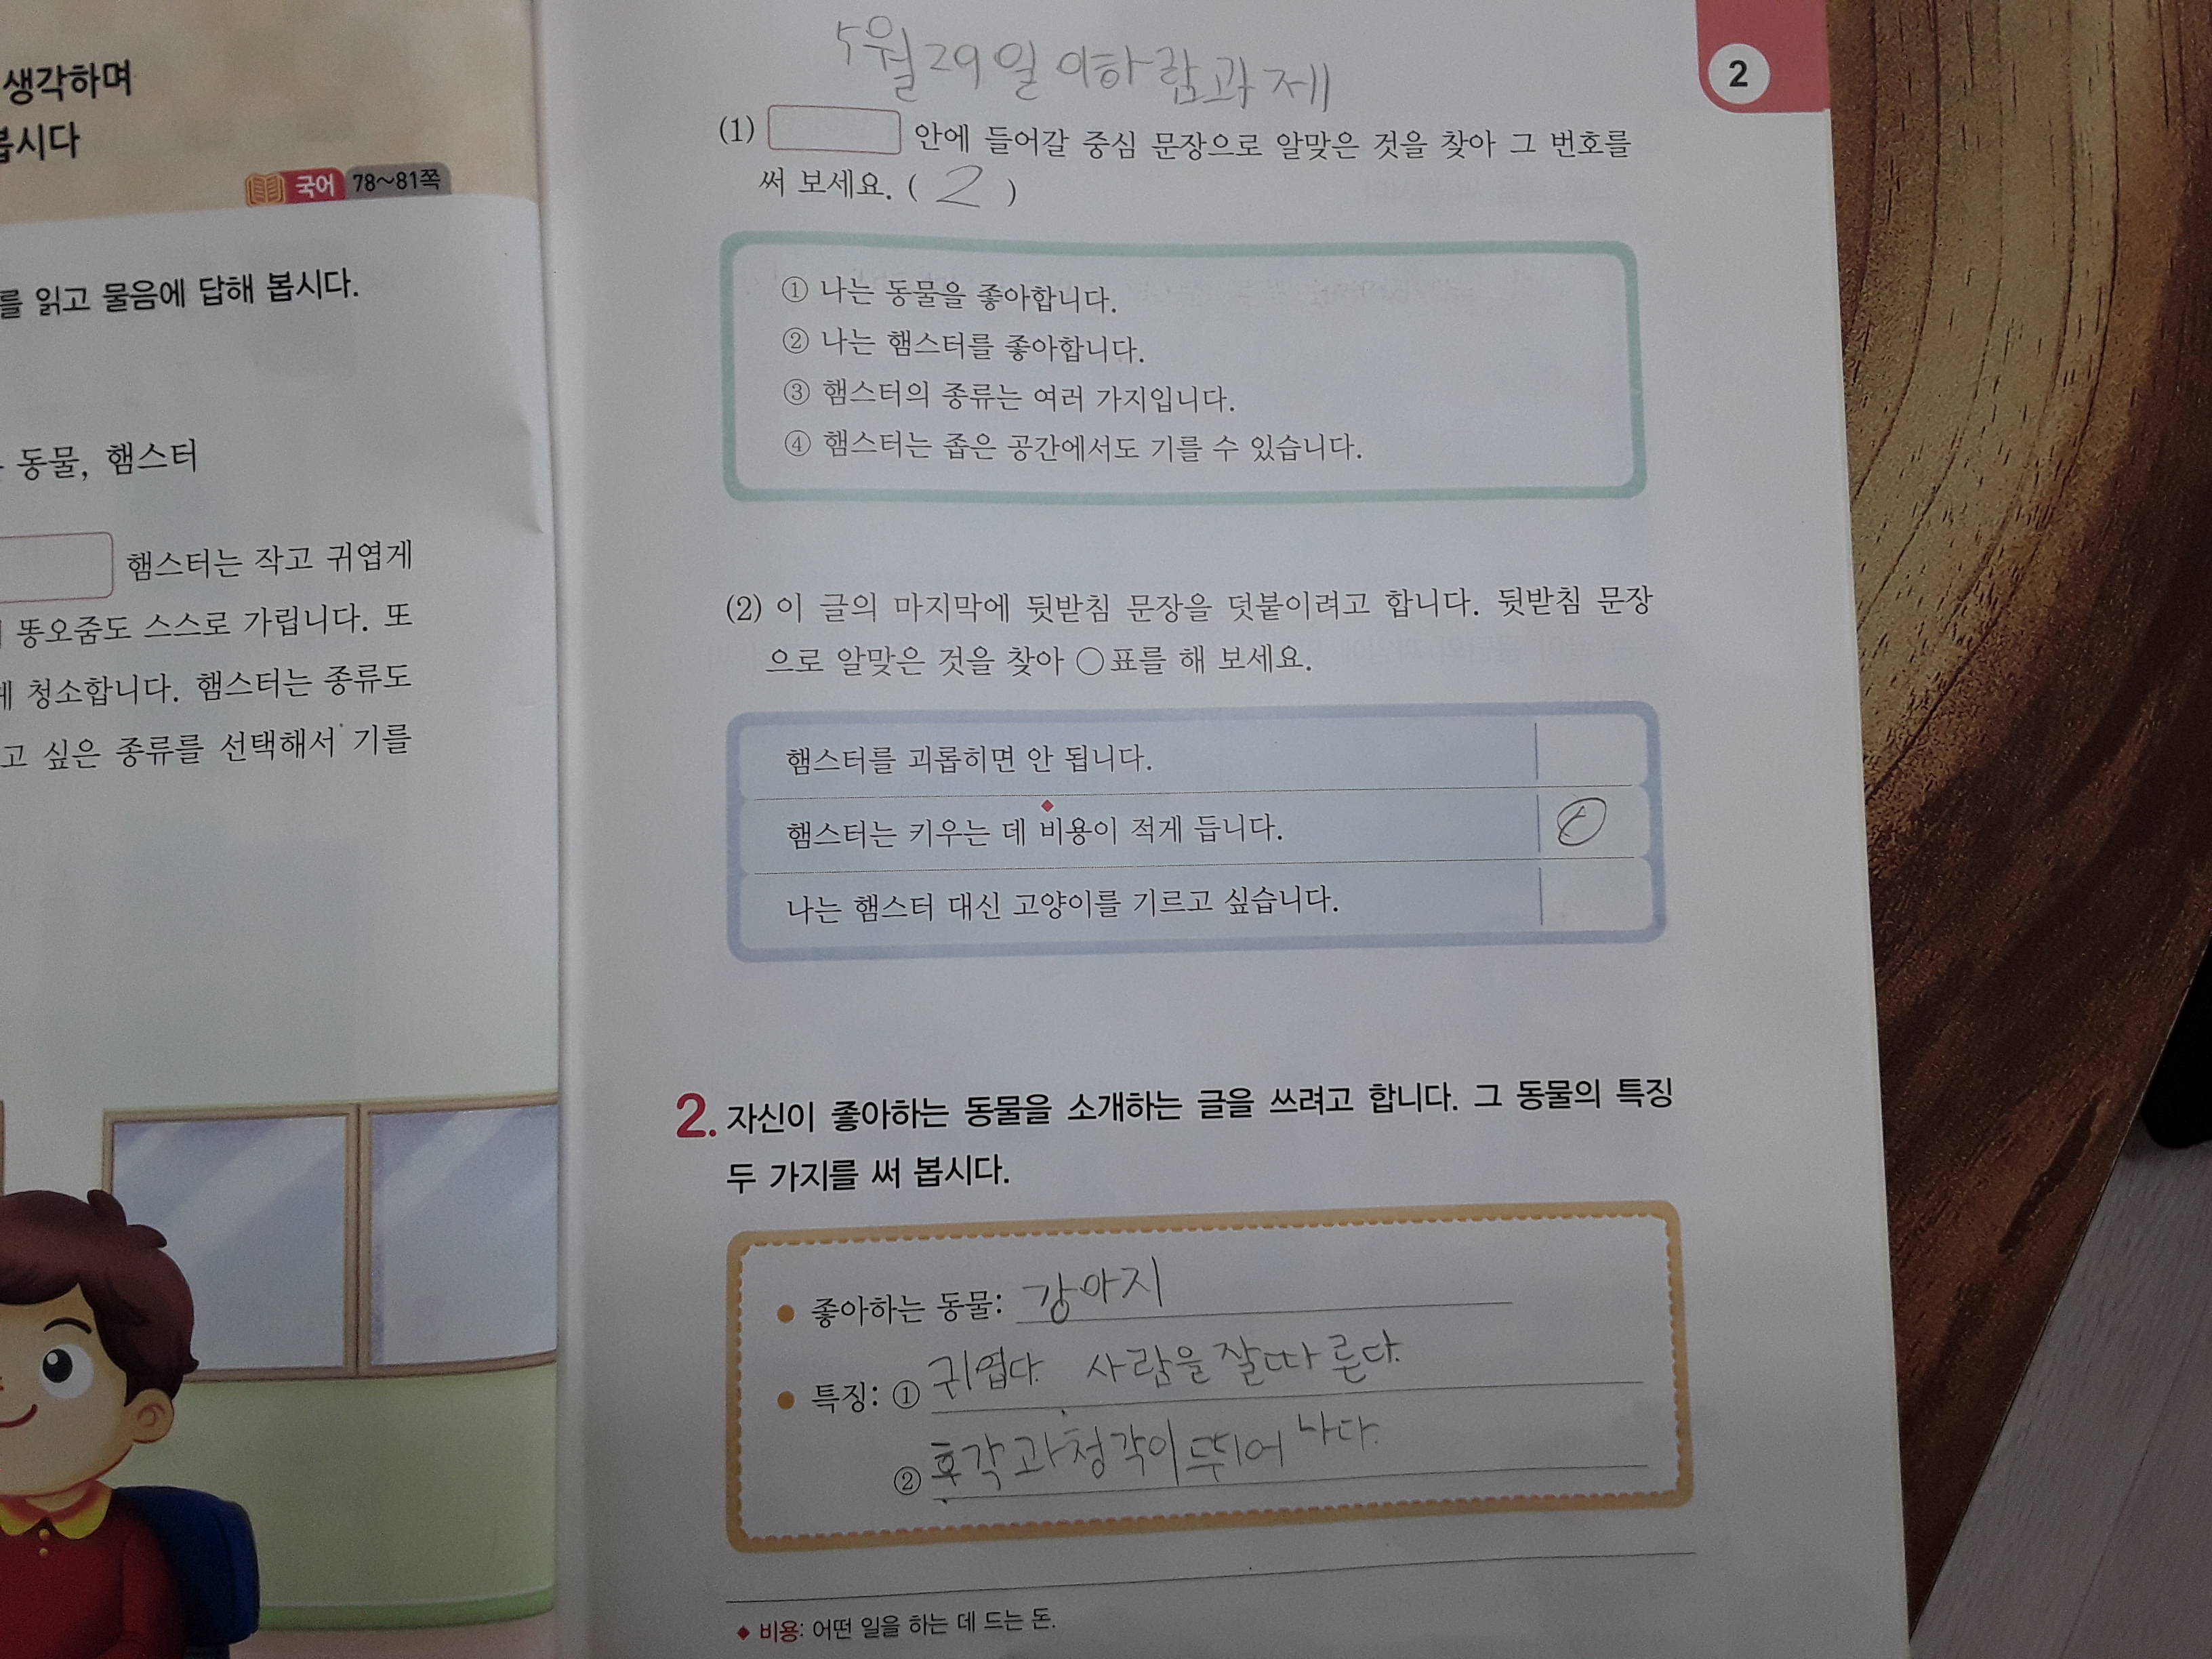 생각하며
봅시다
국어 78~81쪽
를 읽고 물음에 답해 봅시다.
동물, 햄스터
햄스터는 작고 귀엽게
똥오줌도 스스로 가립니다. 또
게 청소합니다. 햄스터는 종류도
고 싶은 종류를 선택해서 기를
5월 29일 이하람과제
2
(1) 안에 들어갈 중심 문장으로 알맞은 것을 찾아 그 번호를
써 보세요. ( 2 )
① 나는 동물을 좋아합니다.
② 나는 햄스터를 좋아합니다.
③ 햄스터의 종류는 여러 가지입니다.
④ 햄스터는 좁은 공간에서도 기를 수 있습니다.
(2) 이 글의 마지막에 뒷받침 문장을 덧붙이려고 합니다. 뒷받침 문장
으로 알맞은 것을 찾아 ○표를 해 보세요.
햄스터를 괴롭히면 안 됩니다.
햄스터는 키우는 데 비용이 적게 듭니다. ○
나는 햄스터 대신 고양이를 기르고 싶습니다.
2. 자신이 좋아하는 동물을 소개하는 글을 쓰려고 합니다. 그 동물의 특징
두 가지를 써 봅시다.
● 좋아하는 동물: 강아지
● 특징: ① 귀엽다. 사람을 잘따른다.
② 후각과청각이뛰어나다.
◆ 비용: 어떤 일을 하는 데 드는 돈.